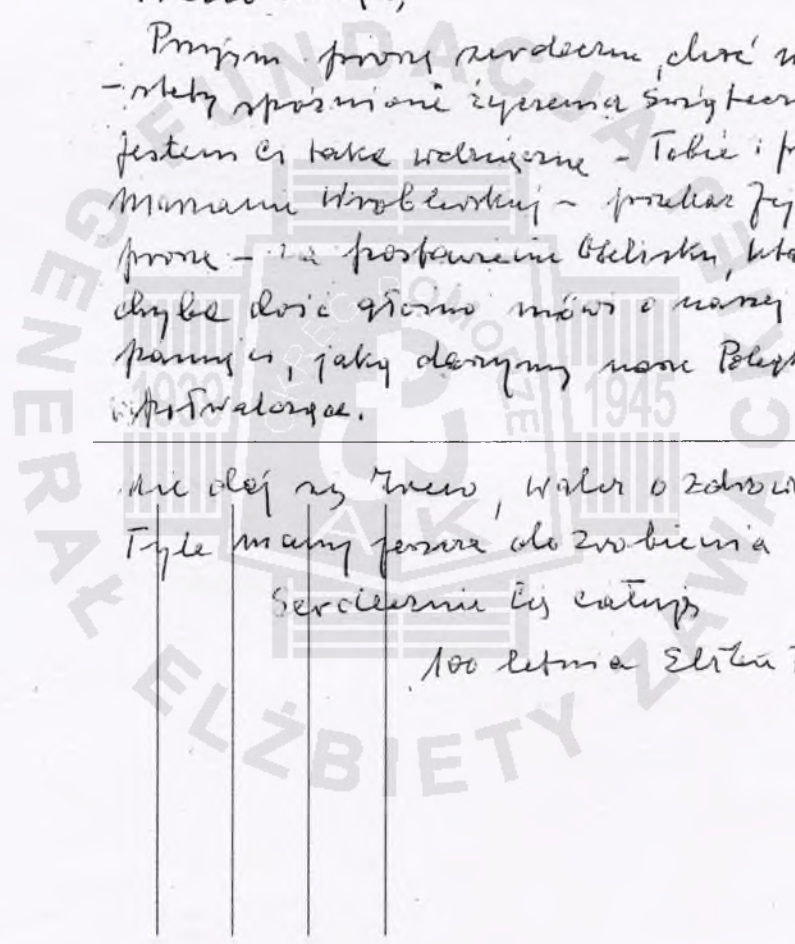 Przyjm proszę serdeczne, choć n
- stety spóźnione życzenia Święteczn
Jestem Ci taka wdzięczna - Tobie i p
Mariannie Wróblewskiej - przekaż Jej
proszę - za postawienie Obelisku, któ
chyba dość głośno mówi o naszej
pamięci, jaką darzymy nasze Poległ
współwalczące.
Nie daj się , walcz o zdrowi
Tyle mamy jeszcze do zrobienia
Serdecznie Cię całuję
100 letnia Elżbieta
FUNDACJA
GENERAŁ ELŻBIETY ZAWACKIEJ
OKRĘG POMORZE
1939
1945
AK